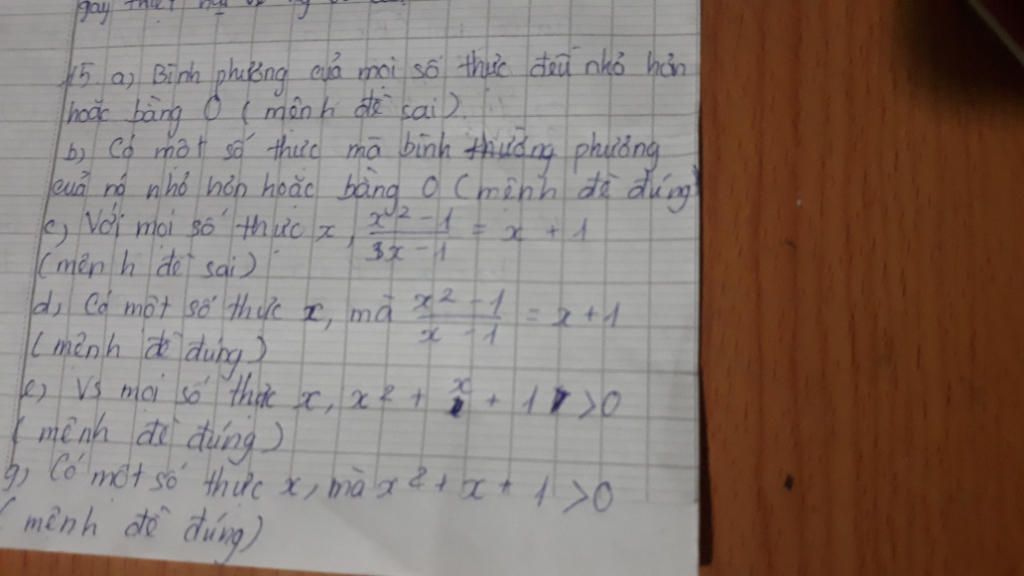 15. a) Bình phương của mọi số thực đều nhỏ hơn
hoặc bằng 0 (mệnh đề sai).
b) Có một số thực mà bình thường phương
của nó nhỏ hơn hoặc bằng 0 (mệnh đề đúng)
c) Với mọi số thực x, x² - 1 / 3x - 1 = x + 1
(mệnh đề sai)
d) Có một số thực x, mà x² - 1 / x - 1 = x + 1
(mệnh đề đúng)
e) Vs mọi số thực x, x² + x + 1 > 0
(mệnh đề đúng)
g) Có một số thực x, mà x² + x + 1 > 0
(mệnh đề đúng)